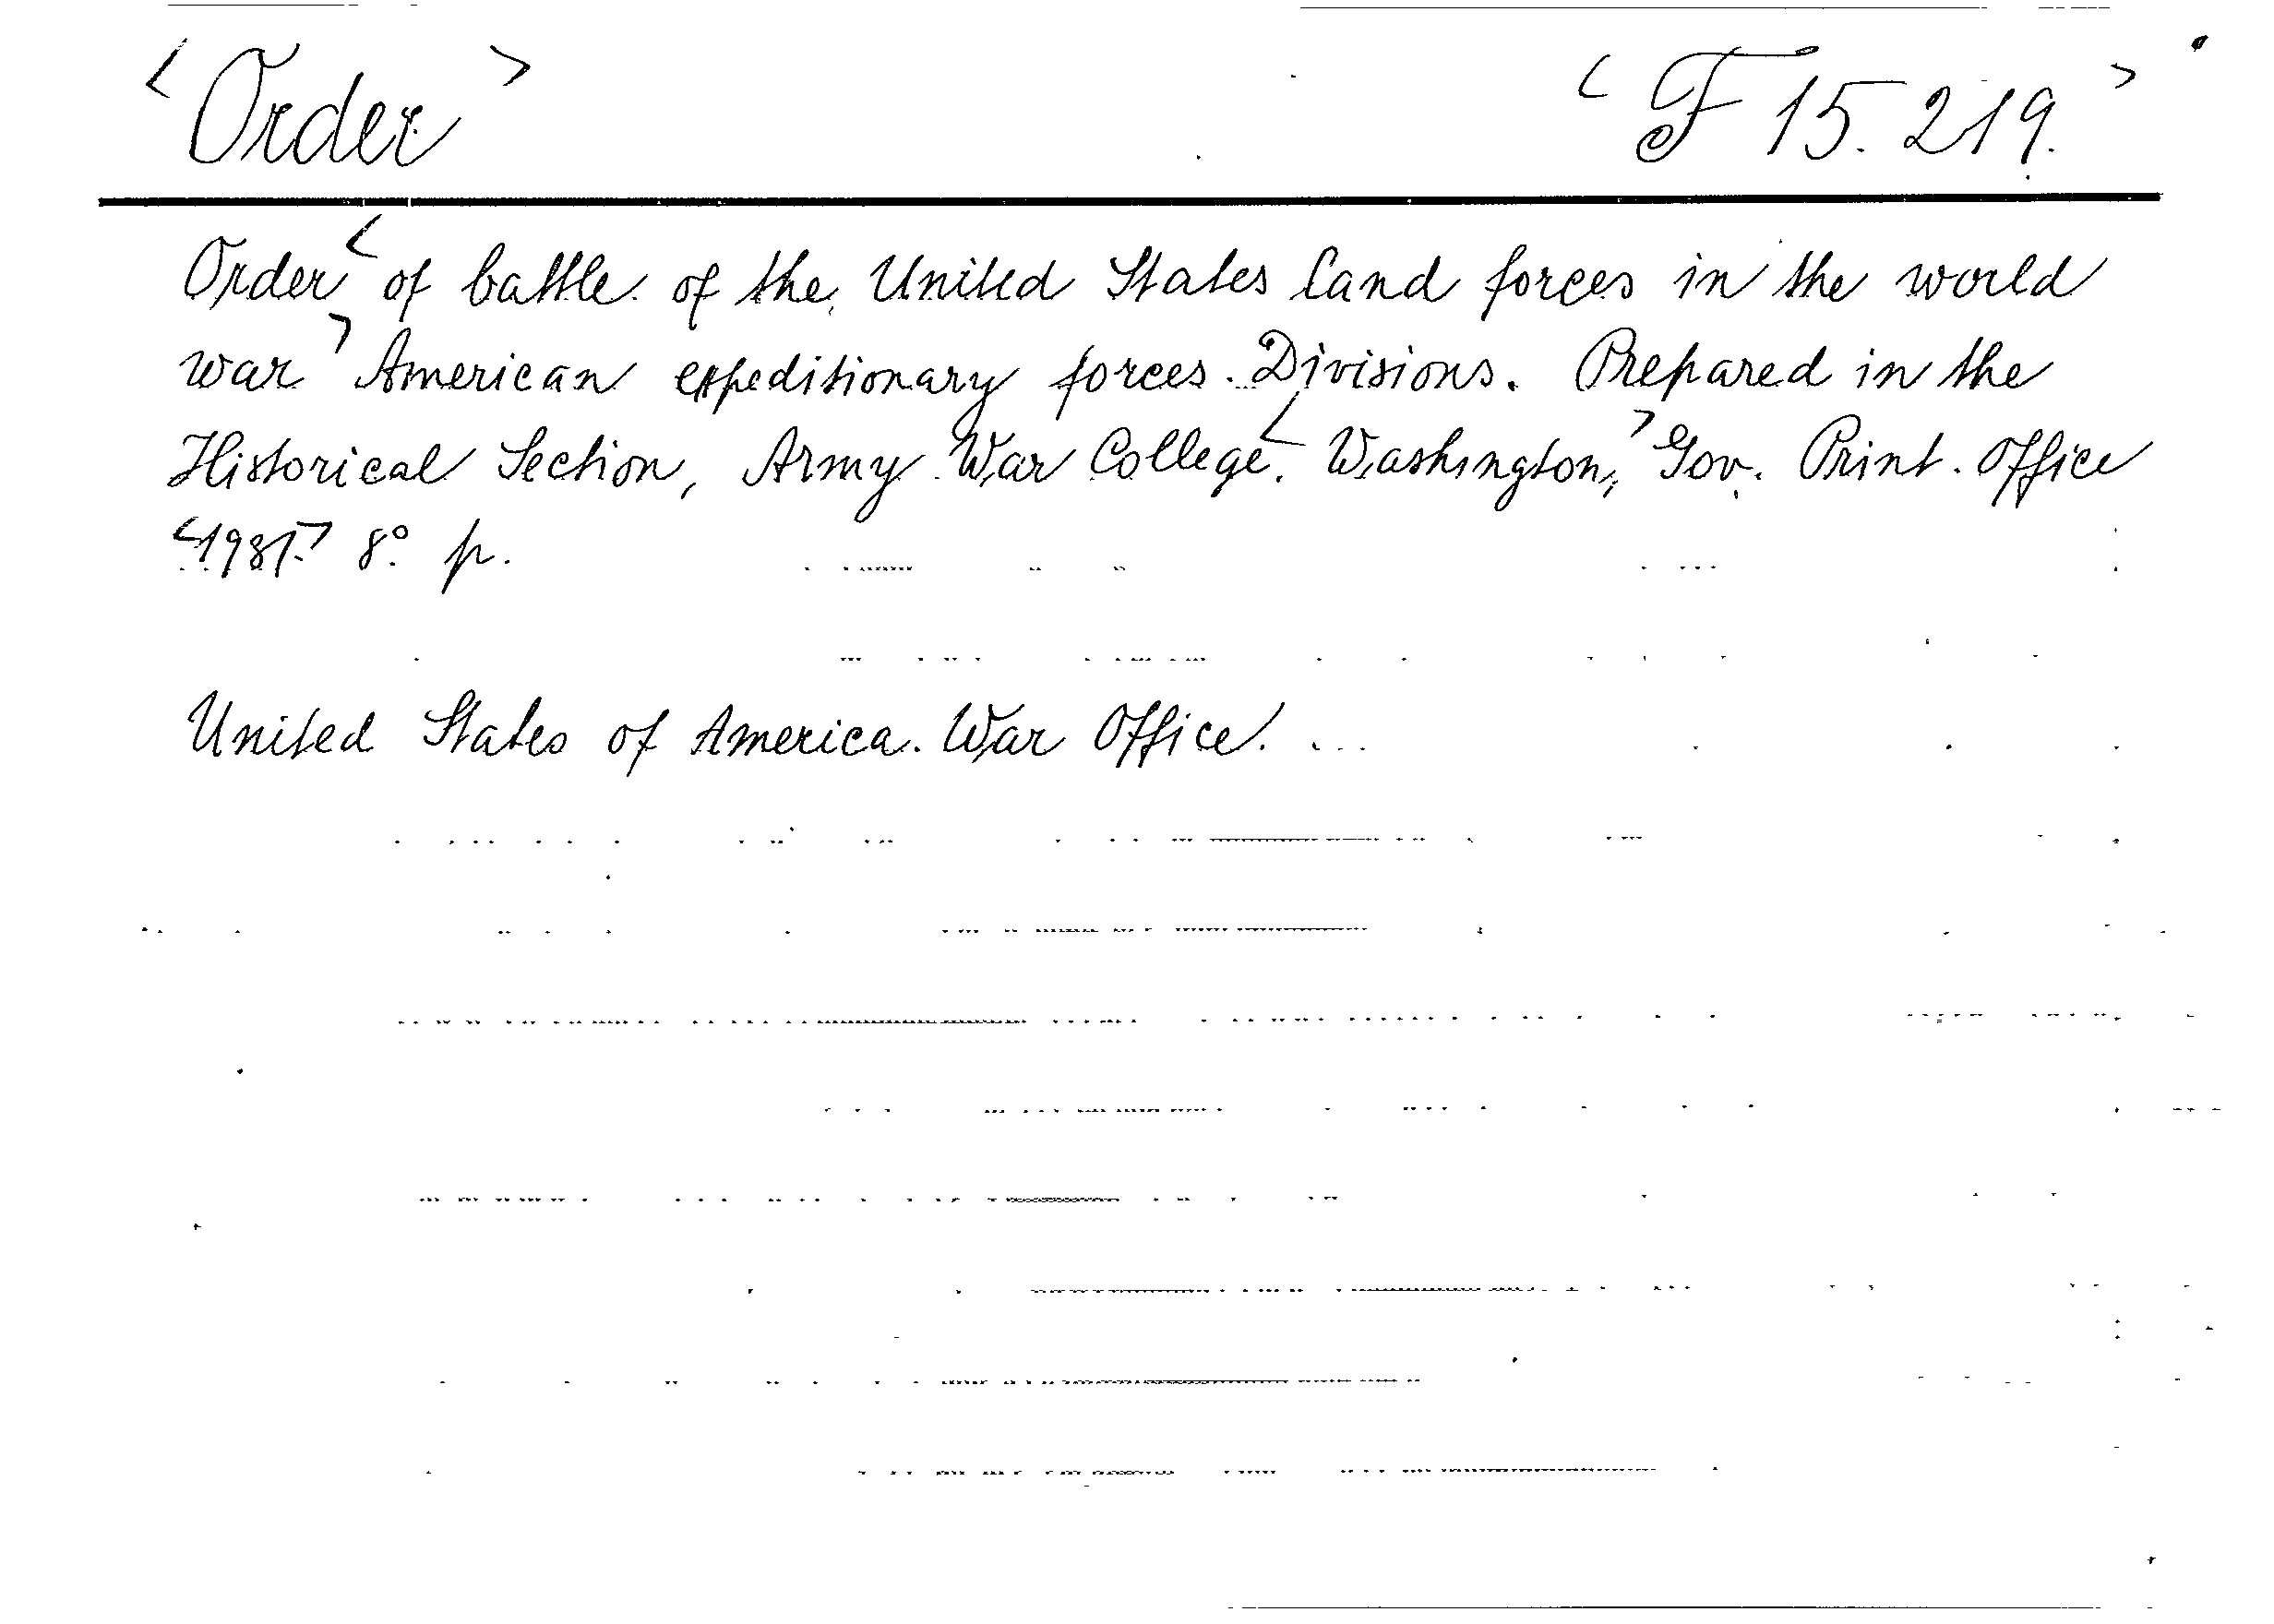 <Order> <F 15.219.>
Order <of battle of the United States land forces in the world
war> American expeditionary forces. Divisions. Prepared in the
Historical Section, Army War College. <Washington,> Gov. Print. Office
<1931.> 8° p.
United States of America. War Office.